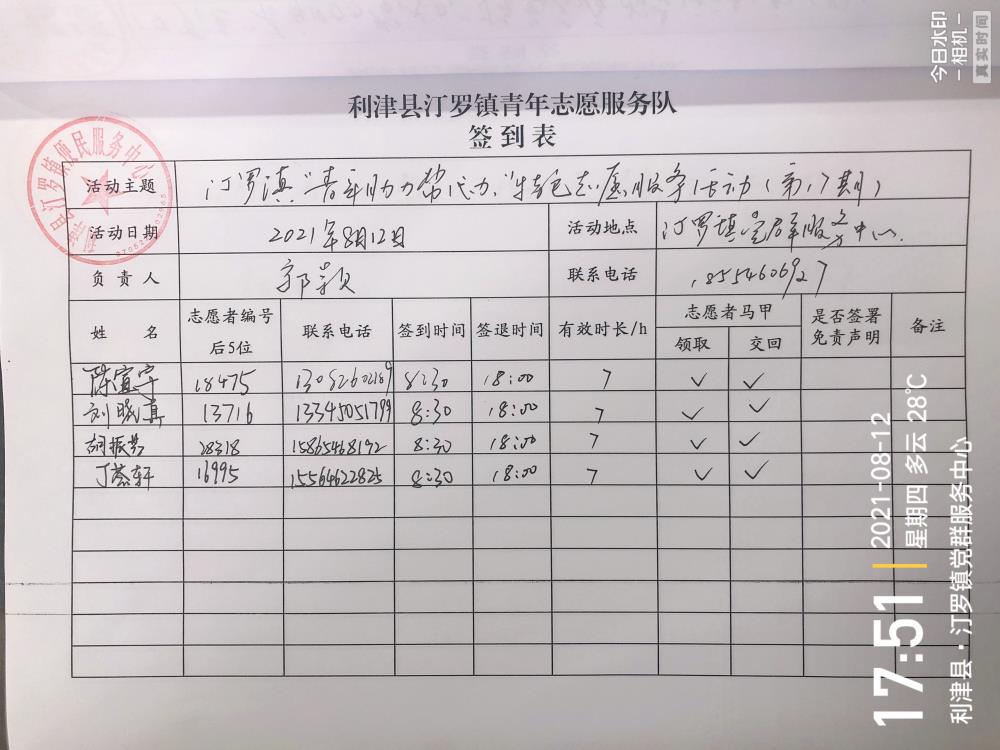 今日水印
-相机-
真实时间
利津县汀罗镇青年志愿服务队
签到表
活动主题 汀罗镇“青年助力帮代办”特色志愿服务活动(第17期)
活动日期 2021年8月12日 活动地点 汀罗镇党群服务中心
负责人 郭颖 联系电话 18554606927
姓名 志愿者编号后5位 联系电话 签到时间 签退时间 有效时长/h 志愿者马甲 是否签署免责声明 备注
领取 交回
陈宜宁 18475 8:30 18:00 7 ✓ ✓
刘晓真 13716 13345051799 8:30 18:00 7 ✓ ✓
胡振芳 28318 15865468192 8:30 18:00 7 ✓ ✓
丁慕轩 16995 15564622825 8:30 18:00 7 ✓ ✓
县汀罗镇便民服务中心
17:51
2021-08-12
星期四 多云 28℃
利津县·汀罗镇党群服务中心